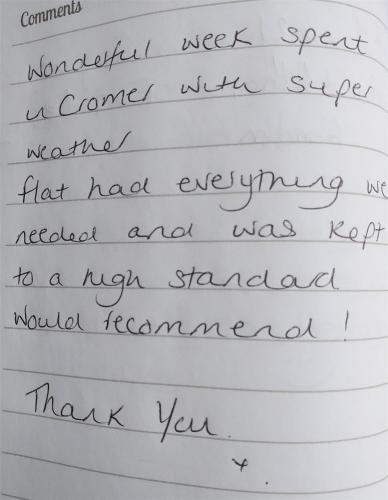 Comments
Wonderful week spent
in Cromer with super
weather
flat had everything we
needed and was kept
to a high standard
Would recommend !
Thank You.
x.